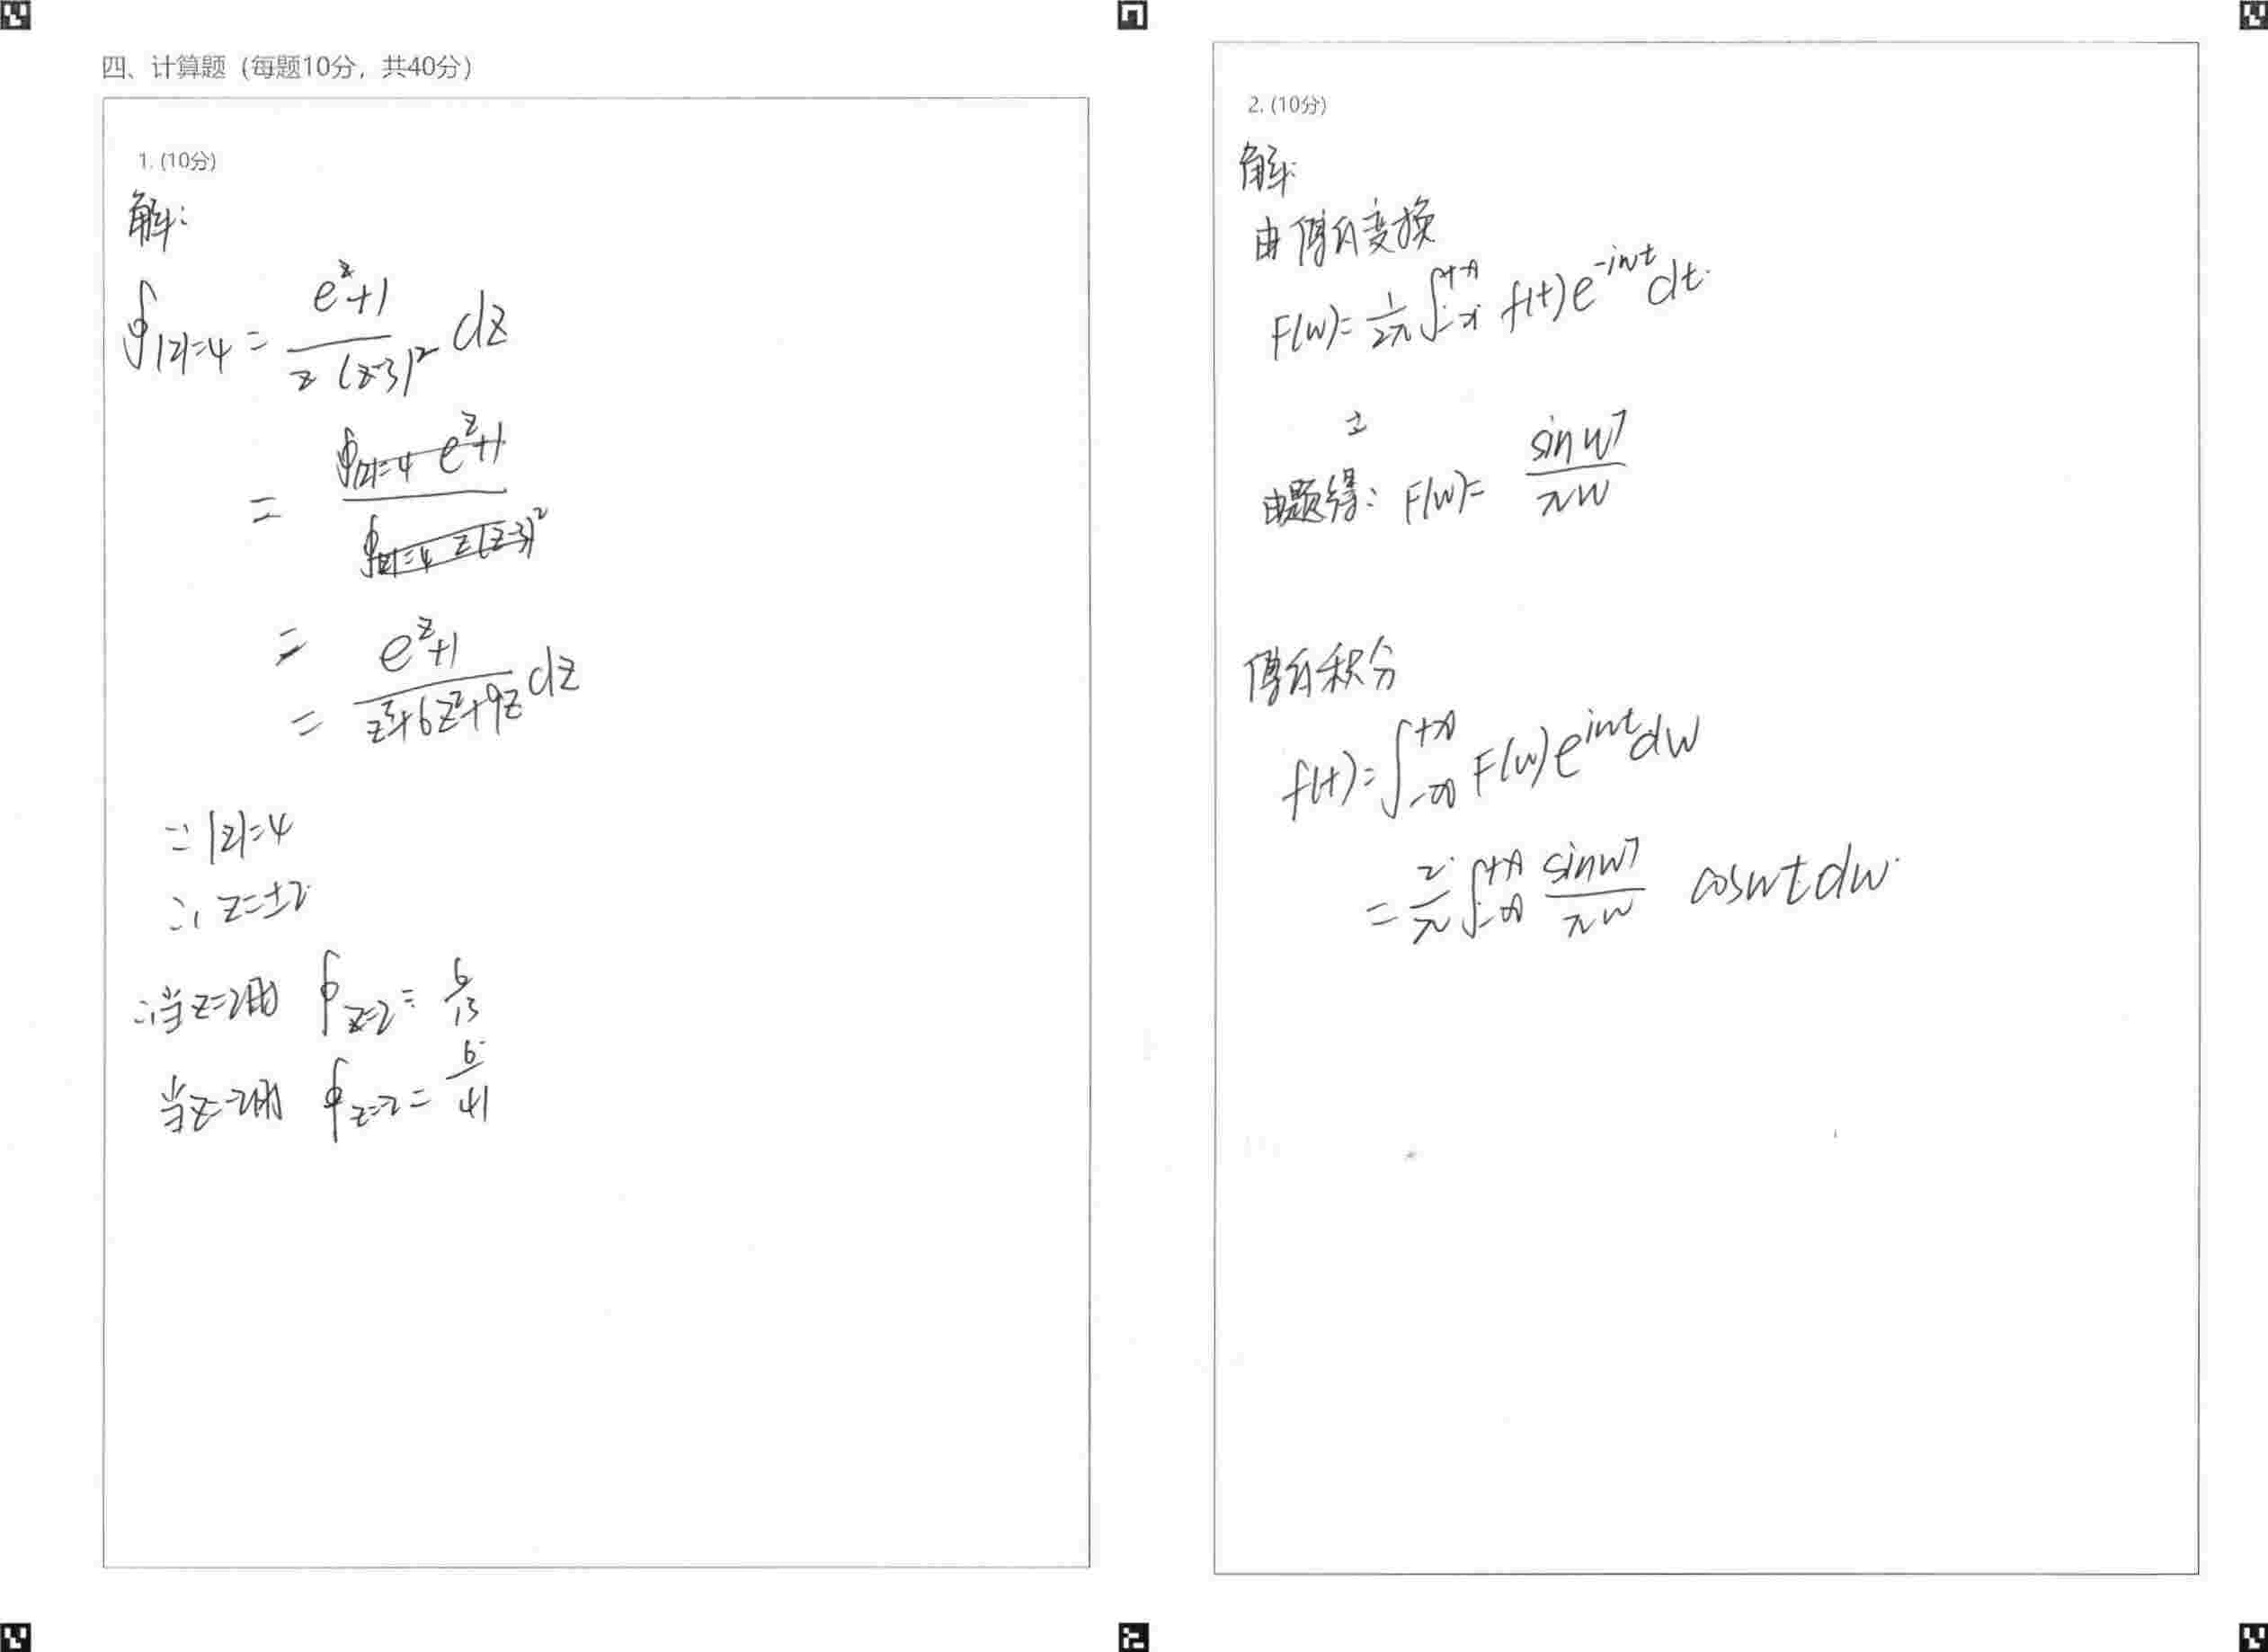 四、计算题（每题10分，共40分）
1. (10分)
解：
∮|z|=4 = e^z+1 / z (z-3)^2 dz
= ∮|z|=4 e^z+1 / ∮|z|=4 z(z-3)^2
=
= e^z+1 / z^3+6z^2+9z dz
∵ |z|=4
∴ z=±2
∴当z=2时 ∮z=2 = 6/13
当z=-2时 ∮z=-2 = 6/41
2. (10分)
解:
由傅氏变换
F(w)= 1/2π ∫-∞ +∞ f(t)e^-iwt dt.
由题得：F(w)= sinw7 / πw
傅氏积分
f(t)= ∫-∞ +∞ F(w)e^iwt dw
= 2/π ∫-∞ +∞ sinw7 / πw coswt dw.